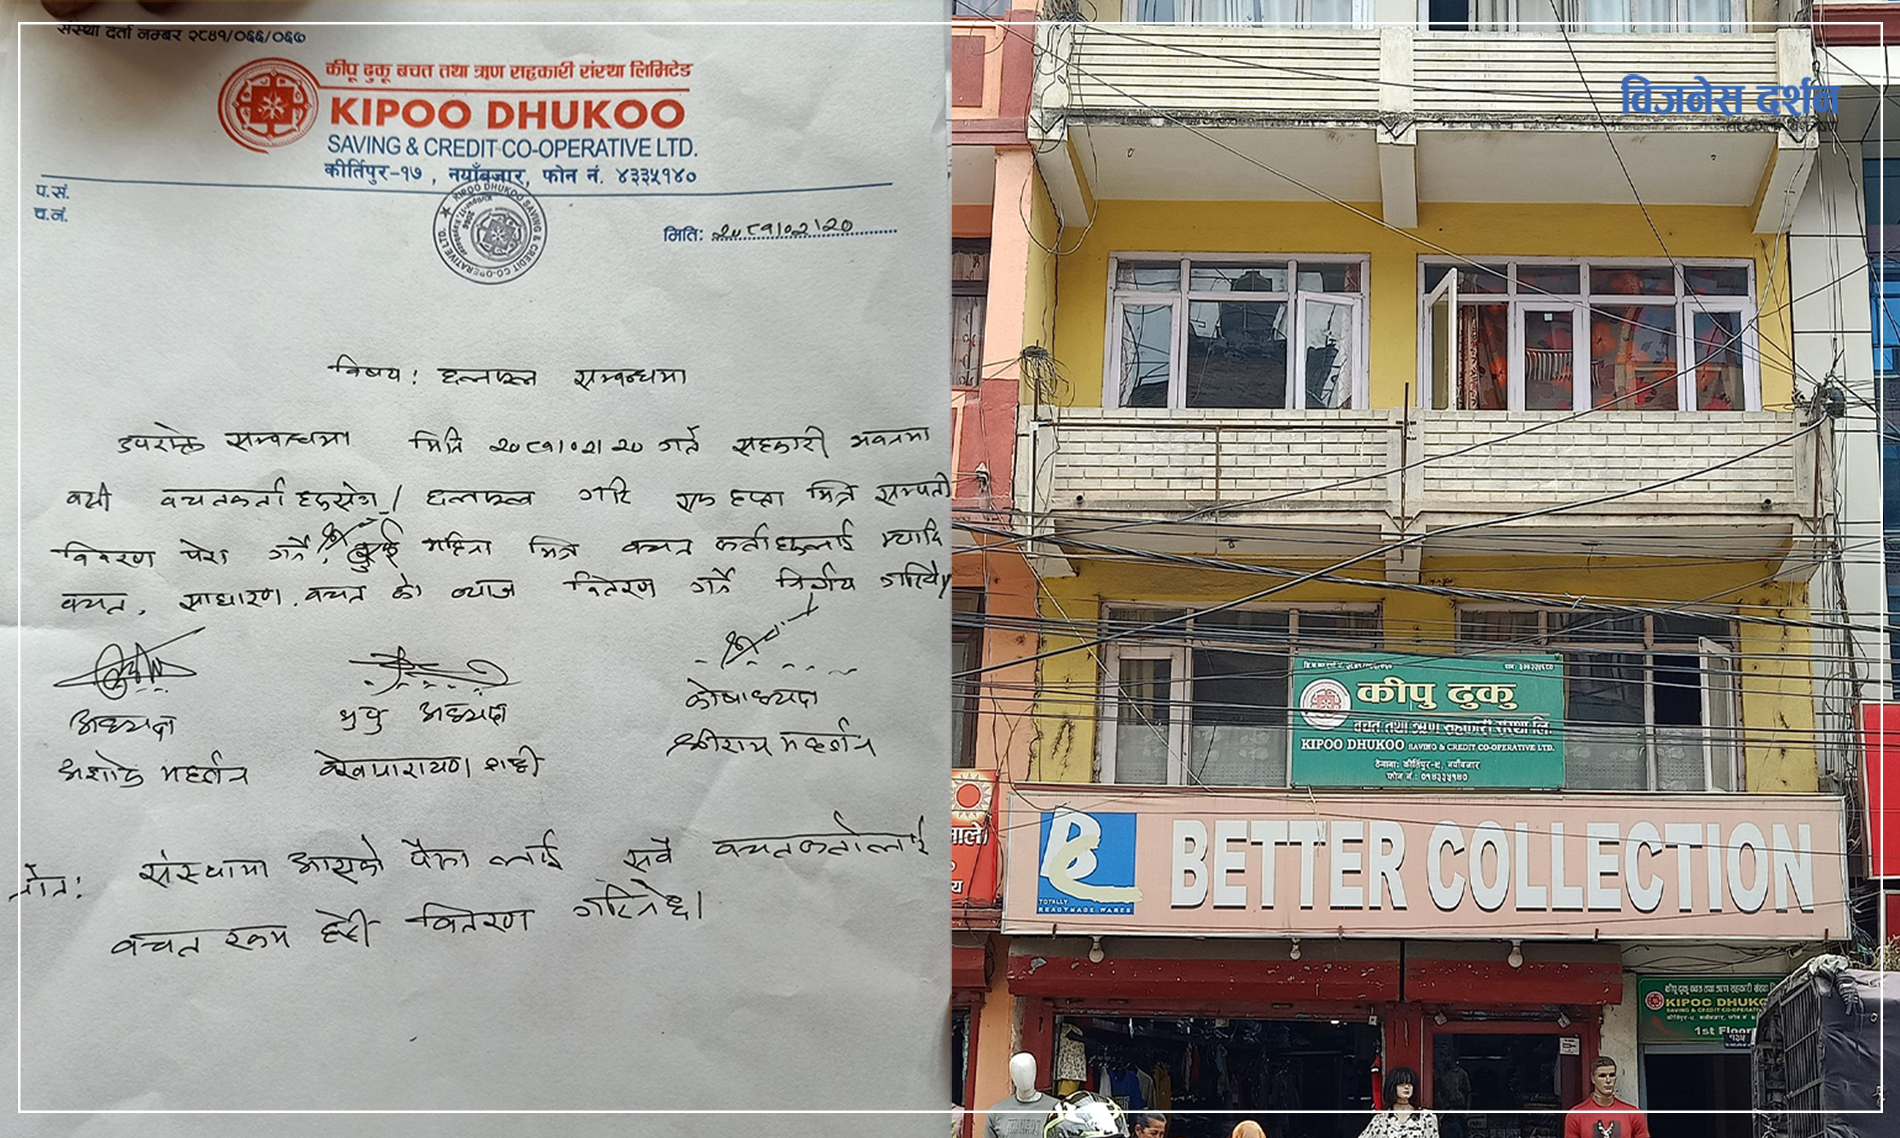 संस्था दर्ता नम्बर २८४१/०६६/०६७
कीपू ढुकू बचत तथा ऋण सहकारी संस्था लिमिटेड
KIPOO DHUKOO
SAVING & CREDIT CO-OPERATIVE LTD.
कीर्तिपुर-१७ , नयाँबजार, फोन नं. ४३३५१४०
प.सं.
च.नं.
KIPOO DHUKOO SAVING & CREDIT CO-OPERATIVE LTD.
मिति: २०८१।०२।२०
विषय: छलफल सम्बन्धमा
उपरोक्त सम्बन्धमा मिति २०८१।०२।२० गते सहकारी भवनमा
बसी बचतकर्ता हरुसँग छलफल गरि एक हप्ता भित्र सम्पती
विवरण पेश गर्ने, दुई महिना भित्र बचत कर्ताहरुलाई म्यादि
बचत, साधारण बचत को ब्याज वितरण गर्ने निर्णय गरियो।
अध्यक्ष
अशोक महर्जन
उपाध्यक्ष
कोषाध्यक्ष
श्रीराम महर्जन
नोट: संस्थामा आएको पैसा लाई सबै बचतकर्तालाई
बचत रकम हेरी वितरण गरिनेछ।
बिजनेस दर्शन
कीपु ढुकु
बचत तथा ऋण सहकारी संस्था लि.
KIPOO DHUKOO SAVING & CREDIT CO-OPERATIVE LTD.
ठेगाना: कीर्तिपुर-९, नयाँबजार
फोन नं.: ०१४३३५१४०
BETTER COLLECTION
TOTALLY
READYMADE WARES
कीपू ढुकू बचत तथा ऋण सहकारी संस्था
KIPOO DHUKO
SAVING & CREDIT CO-OPERATIV
1st Floor